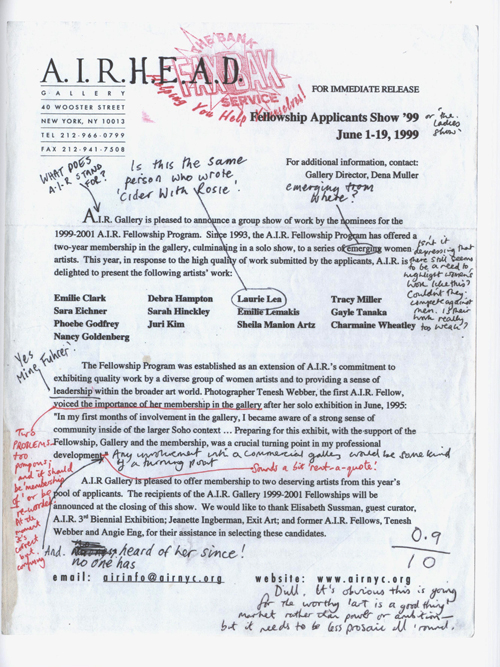 A.I.R.H.E.A.D.
GALLERY
40 WOOSTER STREET
NEW YORK, NY 10013
TEL 212-966-0799
FAX 212-941-7508
THE BANK
SERVICE
Helping You Help Yourselves!
FOR IMMEDIATE RELEASE
Fellowship Applicants Show '99
or 'the
Ladies
show'
June 1-19, 1999
For additional information, contact:
Gallery Director, Dena Muller
emerging from
where?
WHAT DOES
A.I.R STAND
FOR?
Is this the same
person who wrote
'Cider With Rosie'.
A.I.R. Gallery is pleased to announce a group show of work by the nominees for the
1999-2001 A.I.R. Fellowship Program. Since 1993, the A.I.R. Fellowship Program has offered a
two-year membership in the gallery, culminating in a solo show, to a series of emerging women
artists. This year, in response to the high quality of work submitted by the applicants, A.I.R. is
delighted to present the following artists' work:
Isn't it
depressing that
there still seems
to be a need to
highlight women's
work like this?
Couldn't they
compete against
men. Is their
work really
too weak?
Emilie Clark Debra Hampton Laurie Lea Tracy Miller
Sara Eichner Sarah Hinckley Emilie Lemakis Gayle Tanaka
Phoebe Godfrey Juri Kim Sheila Manion Artz Charmaine Wheatley
Nancy Goldenberg
Yes
Mine Fuhrer!
The Fellowship Program was established as an extension of A.I.R.'s commitment to
exhibiting quality work by a diverse group of women artists and to providing a sense of
leadership within the broader art world. Photographer Tenesh Webber, the first A.I.R. Fellow,
voiced the importance of her membership in the gallery after her solo exhibition in June, 1995:
"In my first months of involvement in the gallery, I became aware of a strong sense of
community inside of the larger Soho context ... Preparing for this exhibit, with the support of the
Fellowship, Gallery and the membership, was a crucial turning point in my professional
development."
Any involvement with a commercial gallery would be some kind
of a turning point
Sounds a bit rent-a-quote!
Two
PROBLEMS
too
pompous,
and it should
be membership
'of' or be
re-worded
At the
moment
it's
correct
but
confusing
A.I.R Gallery is pleased to offer membership to two deserving artists from this year's
pool of applicants. The recipients of the A.I.R. Gallery 1999-2001 Fellowships will be
announced at the closing of this show. We would like to thank Elisabeth Sussman, guest curator,
A.I.R. 3rd Biennial Exhibition; Jeanette Ingberman, Exit Art; and former A.I.R. Fellows, Tenesh
Webber and Angie Eng, for their assistance in selecting these candidates.
And. no one has heard of her since!
0.9
10
email: airinfo@airnyc.org website: www.airnyc.org
Dull. It's obvious this is going
for the worthy 'art is a good thing'
market rather than profit or ambition -
but it needs to be less prosaic all 'round.